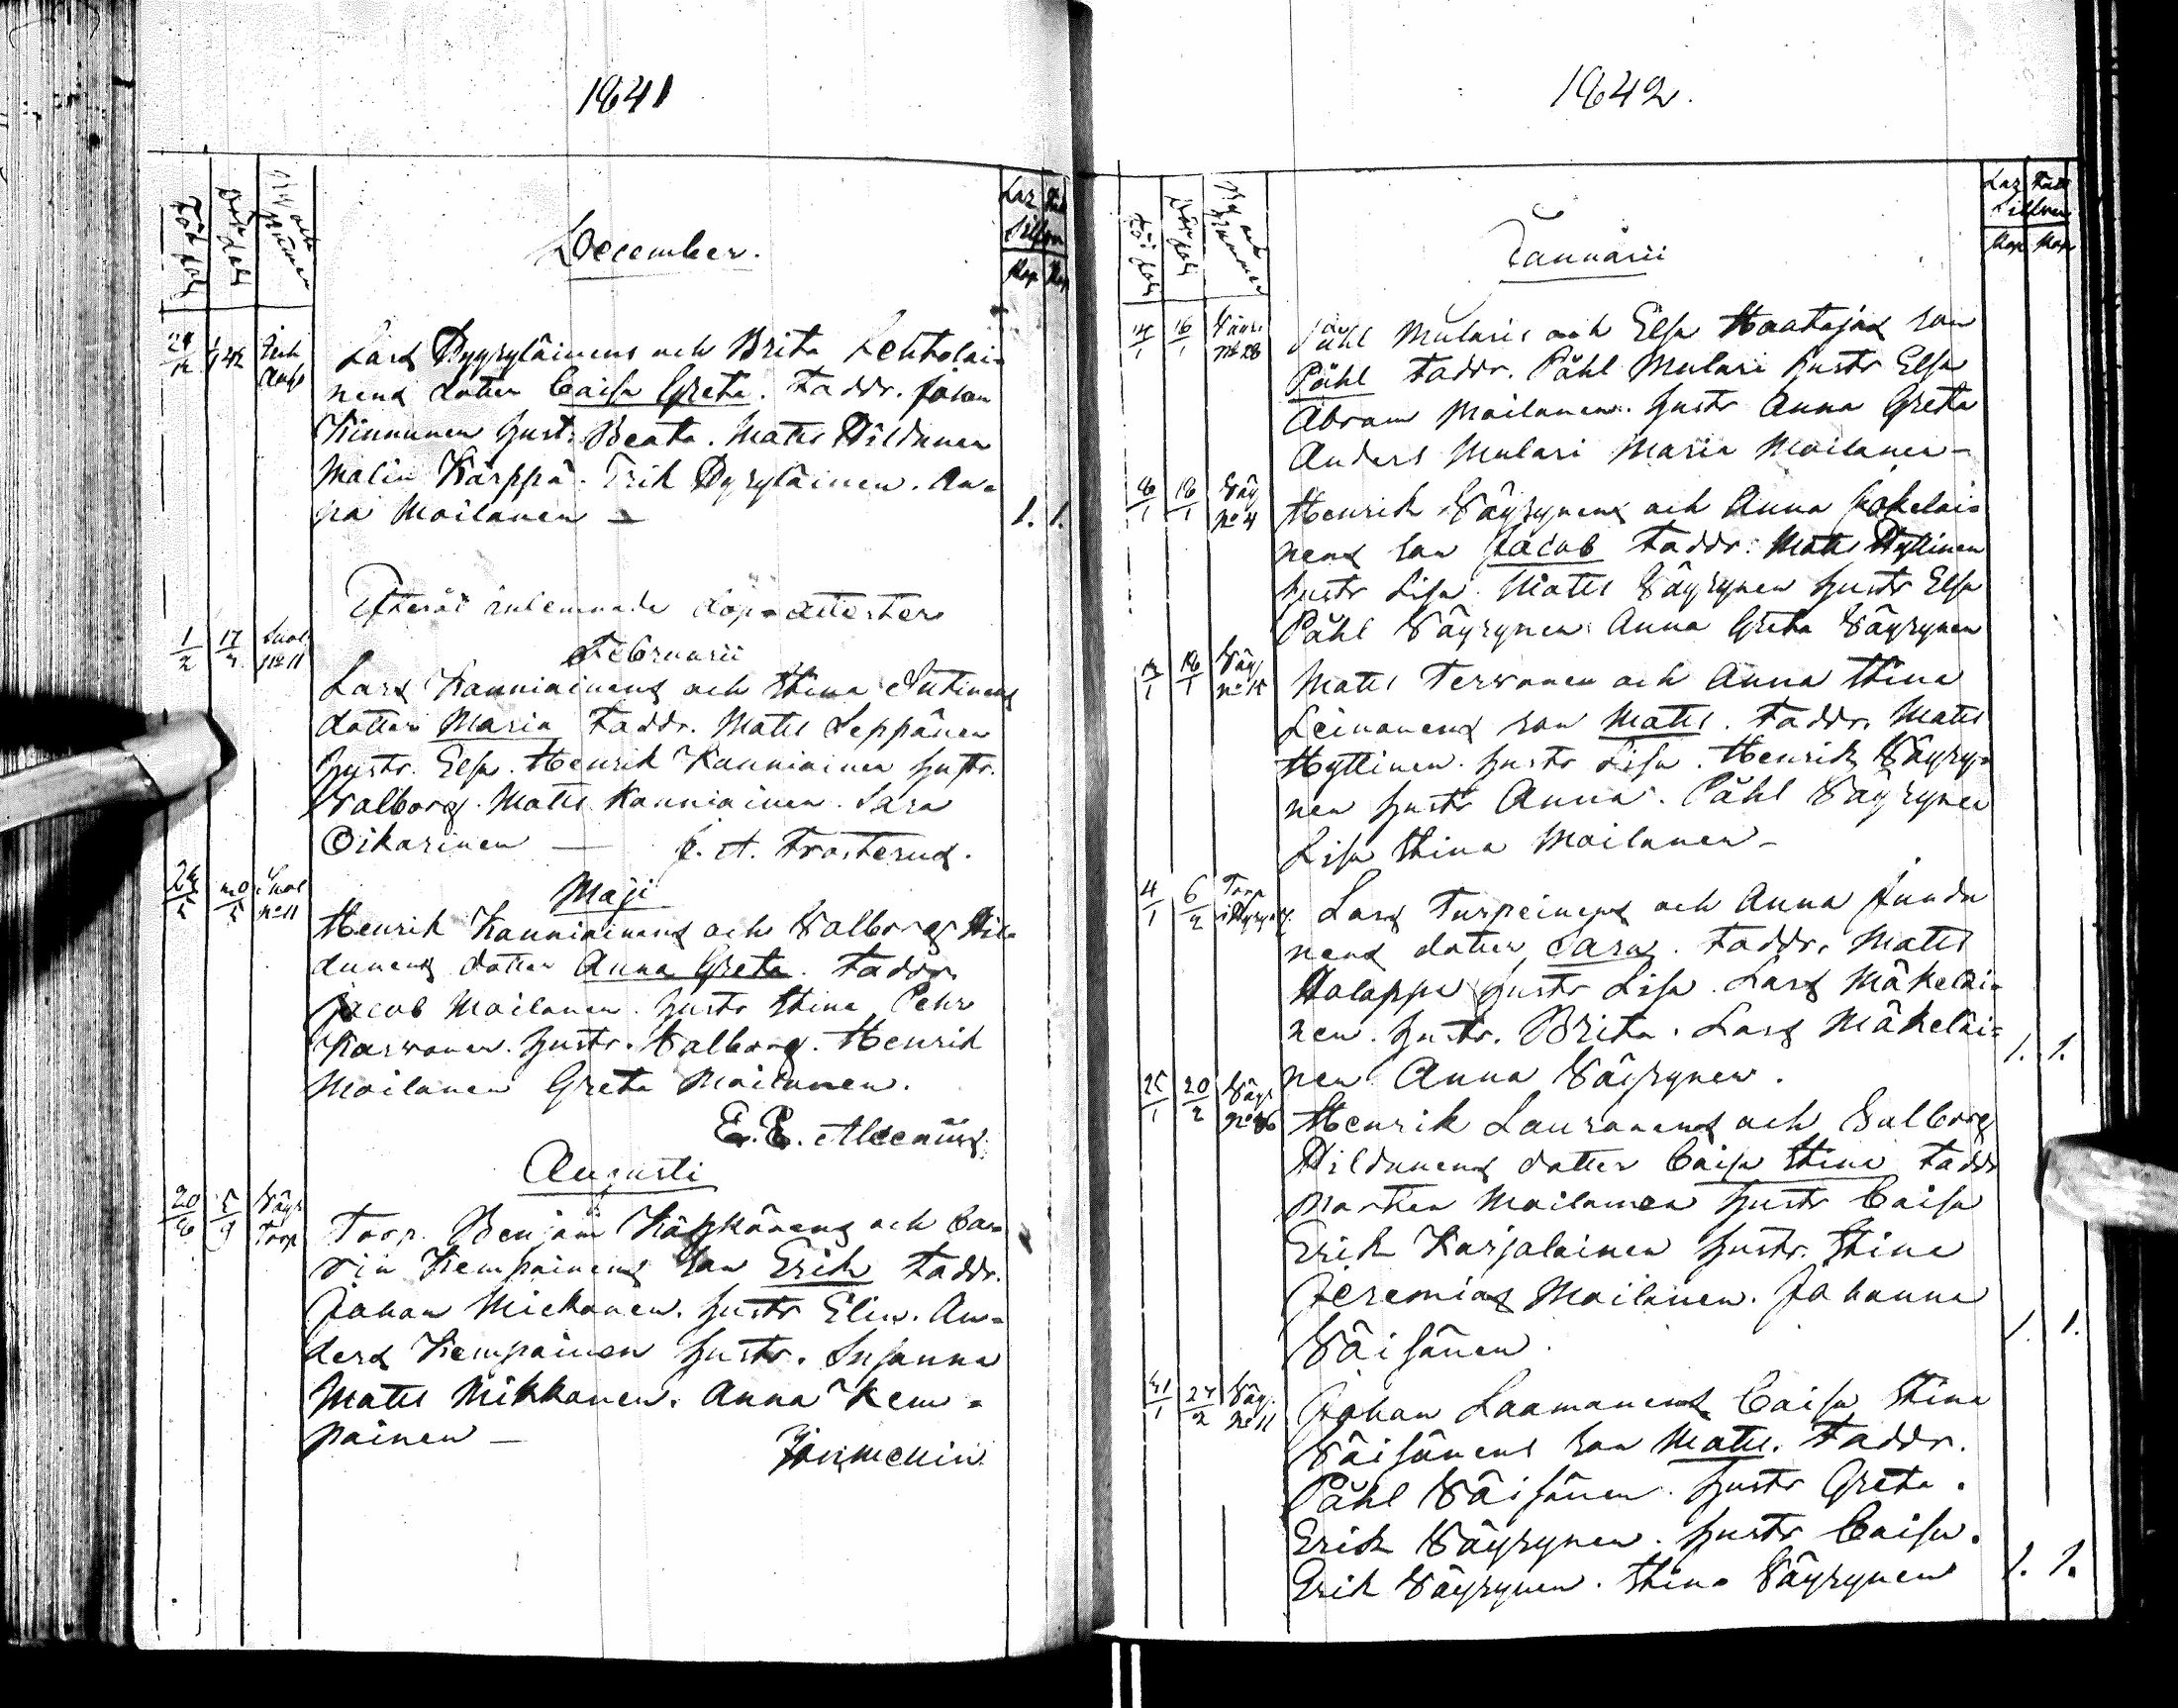 1841
Född
Döpt
By och Nummer
Laz Fatt
Silfver
Kop Kop
December.
Lars Pyyryläinens och Brita Lehtolai=
nens dotter Caisa Greta. Faddr. Johan
Kinnunen hust: Beata. Matts Hildunen
Malin Kärppä. Erik Pyryläinen. An=
na Moilanen —
1. 1.
Efteråt inlemnade döp=attester
1/2 17/2 Suol No 11
Februarii
Lars Kanniainens och Stina Intinens
dotter Maria Faddr. Matts Seppänen
hustr. Elsa. Henrik Kanniainen hustr.
Walborg. Matts Kanniainen. Sara
Oikarinen — J. A. Frosterus.
Maji
Suol No 11
Henrik Kanniainens och Walborg Hil=
dunens dotter Anna Greta. Faddr.
Jacob Moilanen. hustr Stina Pehr
Karvonen. hustr. Walborg. Henrik
Moilanen Greta Moilanen.
E. E. Alcenius.
Augusti
20/8 5/9 Väyr Torp
Torp. Benjam Käpkänens och Ca=
rin Kempainens son Erik Faddr.
Johan Mickonen. hustr Elin. An=
ders Kempainen hustr. Susanna
Matts Mikkonen. Anna Kem=
painen —
1842.
Född
Döpt
By och Nummer
Laz Fatt
Silfver
Kop Kop
Januarii
14/1 16/1 Väyr No 28
Påhl Mularis och Elsa Haatajas son
Påhl Faddr. Påhl Mulari hustr Elsa
Abram Moilanen. hustr Anna Greta
Anders Mulari Maria Moilanen —
Väy No 4
Henrik Väyrynens och Anna Jokelai=
nens son Jacob Faddr: Matts Hyttinen
hustr Lisa. Matts Väyrynen hustr Elsa
Påhl Väyrynen Anna Greta Väyrynen
Matts Tervonen och Anna Stina
Leinonens son Matts. Faddr. Matts
Hyttinen. hustr Lisa. Henrik Väyry=
nen hustr Anna. Påhl Väyrynen
Lisa Stina Moilanen —
4/1 6/2 Torp
Lars Turpeinens och Anna Junda
nens dotter Sara. Faddr. Matts
Holappa hustr Lisa. Lars Mäkeläi=
nen. hustr. Brita. Lars Mäkeläi=
nen Anna Väyrynen.
1. 1.
25/1 20/2 Väyr
Henrik Lauronens och Valborg
Hildunens dotter Caisa Stina Faddr
Morten Moilanen hustr Caisa
Erik Karjalainen hustr. Stina
Jeremias Moilanen. Johanna
Väisänen.
1. 1.
31/1 27/2 Väy. No 11
Johan Laamanens Caisa Stina
Väisänens son Matts. Faddr.
Påhl Väisänen. hustr Greta.
Erik Väyrynen. hustr Caisa.
Erik Väyrynen. Stina Väyrynen
1. 1.